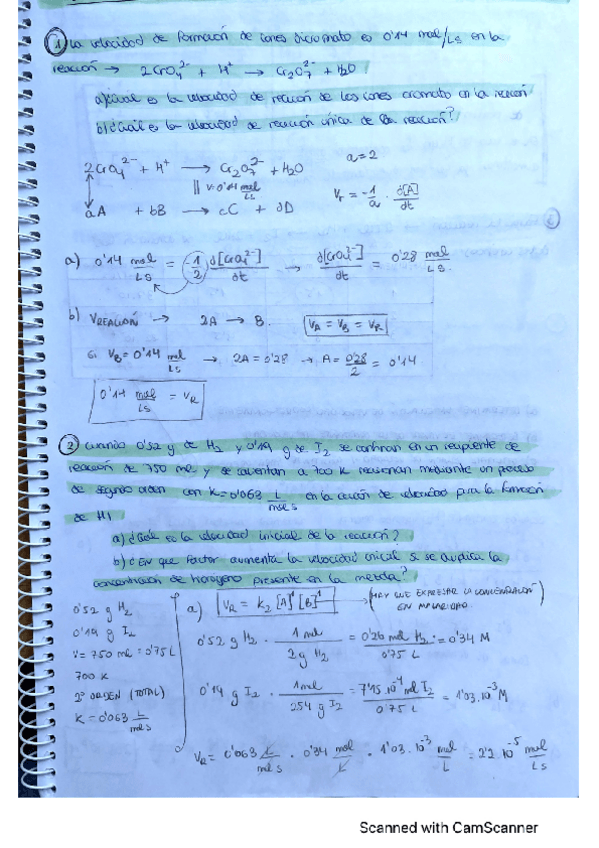 ① La velocidad de formación de iones dicromato es 0'14 mol/Ls en la
reacción → 2CrO₄²⁻ + H⁺ → Cr₂O₇²⁻ + H₂O
a) ¿cual es la velocidad de reacción de los iones cromato en la reacción
b) ¿cuál es la velocidad de reacción única de la reacción?
2CrO₄²⁻ + H⁺ → Cr₂O₇²⁻ + H₂O a=2
|| V=0'14 mol/Ls
aA + bB → cC + dD Vr = -1/a · d[A]/dt
a) 0'14 mol/Ls = 1/2 d[CrO₄²⁻]/dt → d[CrO₄²⁻]/dt = 0'28 mol/LS.
b) VREACCIÓN → 2A → B. VA = VB = VR
Si VB = 0'14 mol/Ls → 2A = 0'28 → A = 0'28/2 = 0'14
0'14 mol/Ls = VR
② Cuando 0'52 g de H₂ y 0'19 g de I₂ se confinan en un recipiente de
reacción de 750 ml y se calientan a 700 K reaccionan mediante un proceso
de segundo orden con K=0'063 L/mol s en la ecuación de velocidad para la formación
de HI
a) ¿Cuál es la velocidad inicial de la reacción?
b) ¿En que factor aumenta la velocidad inicial si se duplica la
concentración de hidrógeno presente en la mezcla?
0'52 g H₂
0'19 g I₂
V= 750 ml = 0'75 L
700 K
2º ORDEN (TOTAL)
K = 0'063 L/mol s
a) VR = K₂ [A]¹ [B]¹ → (HAY QUE EXPRESAR LA CONCENTRACIÓN EN MOLARIDAD)
0'52 g H₂ · 1 mol/2 g H₂ = 0'26 mol H₂/0'75 L = 0'34 M
0'19 g I₂ · 1 mol/254 g I₂ = 7'45·10⁻⁴ mol I₂/0'75 L = 1'03·10⁻³ M
VR = 0'063 L/mol s · 0'34 mol/L · 1'03·10⁻³ mol/L = 2'2·10⁻⁵ mol/Ls
Scanned with CamScanner